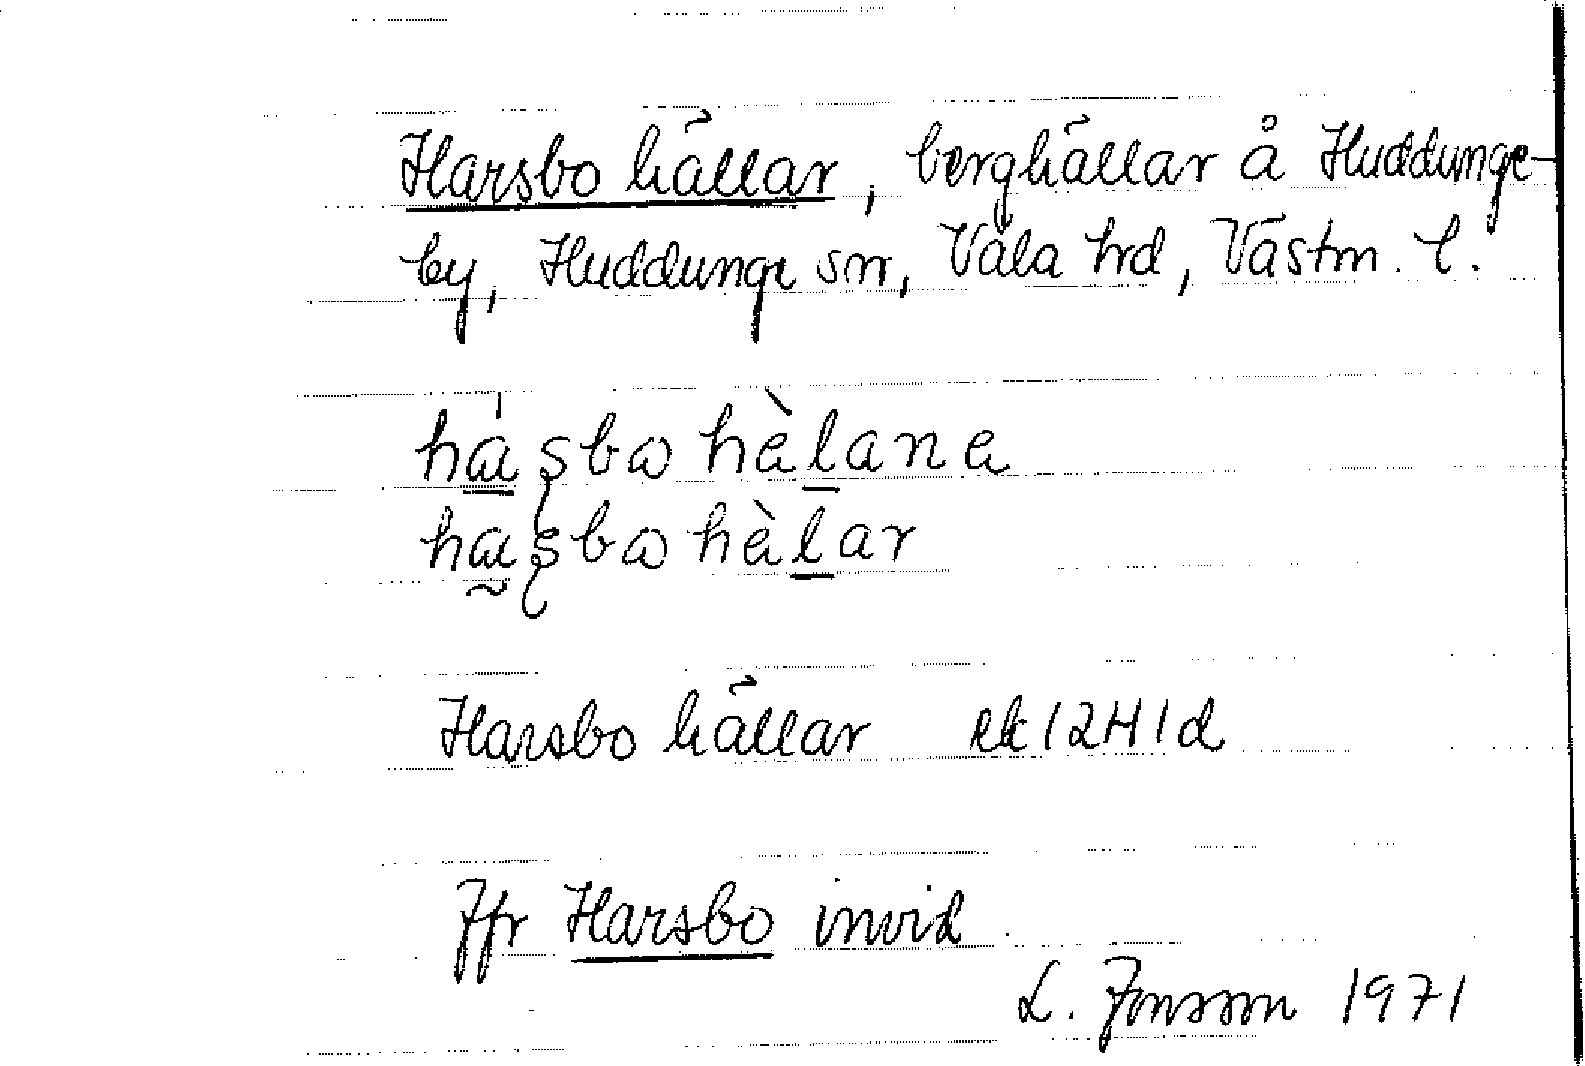 Harsbo hällar, berghällar å Huddunge-
by, Huddunge sn, Våla hrd, Västm. l.
há̱ʂbɷ hèḻanɐ
ha̰ʂbɷ hèḻar
Harsbo hällar ek 12H1d
Jfr Harsbo invid
L. Jonsson 1971